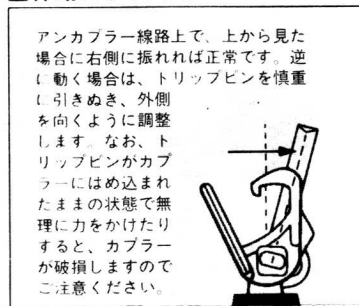 アンカプラー線路上で、上から見た
場合に右側に振れれば正常です。逆
に動く場合は、トリップピンを慎重
に引きぬき、外側
を向くように調整
します。なお、ト
リップピンがカプ
ラーにはめ込まれ
たままの状態で無
理に力をかけたり
すると、カプラー
が破損しますので
ご注意ください。